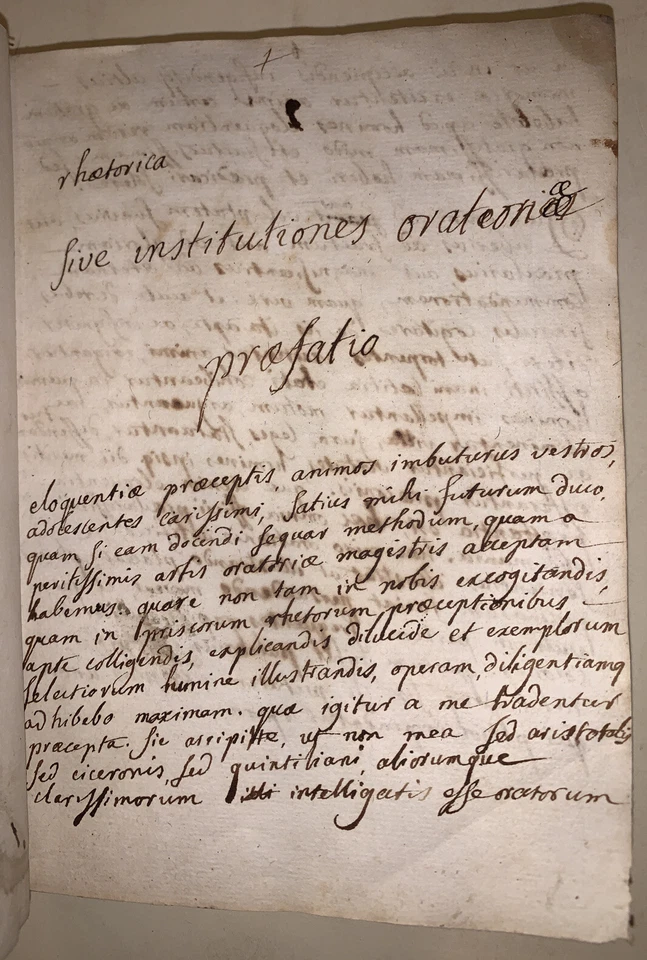 rhætorica
sive institutiones oratoriæ
præfatio
eloquentiæ præceptis, animos imbuturus vestros,
adolescentes carissimi, satius mihi futurum duco,
quam si eam docendi sequar methodum, quam a
peritissimis artis oratoriæ magistris acceptam
habemus. quare non tam in nobis excogitandis,
quam in priscorum rhetorum præceptionibus
apte colligendis, explicandis dilucide et exemplorum
selectiorum lumine illustrandis, operam, diligentiamq
adhibebo maximam. quæ igitur a me tradentur
præcepta. sic accipitte, ut non mea sed aristotelis
sed ciceronis, sed quintiliani, aliorumque
clarissimorum intelligatis esse oratorum